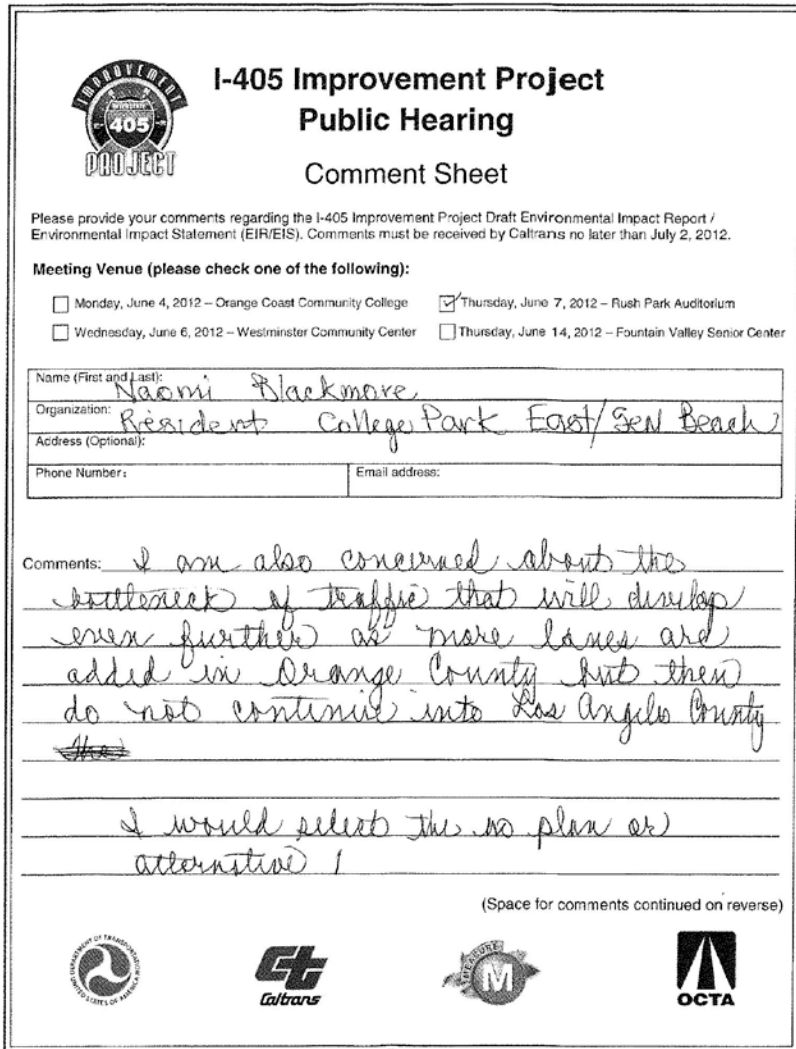 IMPROVEMENT
INTERSTATE
405
PROJECT
I-405 Improvement Project
Public Hearing
Comment Sheet
Please provide your comments regarding the I-405 Improvement Project Draft Environmental Impact Report /
Environmental Impact Statement (EIR/EIS). Comments must be received by Caltrans no later than July 2, 2012.
Meeting Venue (please check one of the following):
Monday, June 4, 2012 – Orange Coast Community College
Thursday, June 7, 2012 – Rush Park Auditorium
Wednesday, June 6, 2012 – Westminster Community Center
Thursday, June 14, 2012 – Fountain Valley Senior Center
Name (First and Last): Naomi Blackmore
Organization: Resident College Park East/Seal Beach
Address (Optional):
Phone Number:
Email address:
Comments: I am also concerned about the
bottleneck of traffic that will develop
even further as more lanes are
added in Orange County but then
do not continue into Los Angeles County
the
I would select the no plan or
alternative 1
(Space for comments continued on reverse)
DEPARTMENT OF TRANSPORTATION
UNITED STATES OF AMERICA
Caltrans
MEASURE
M
OCTA